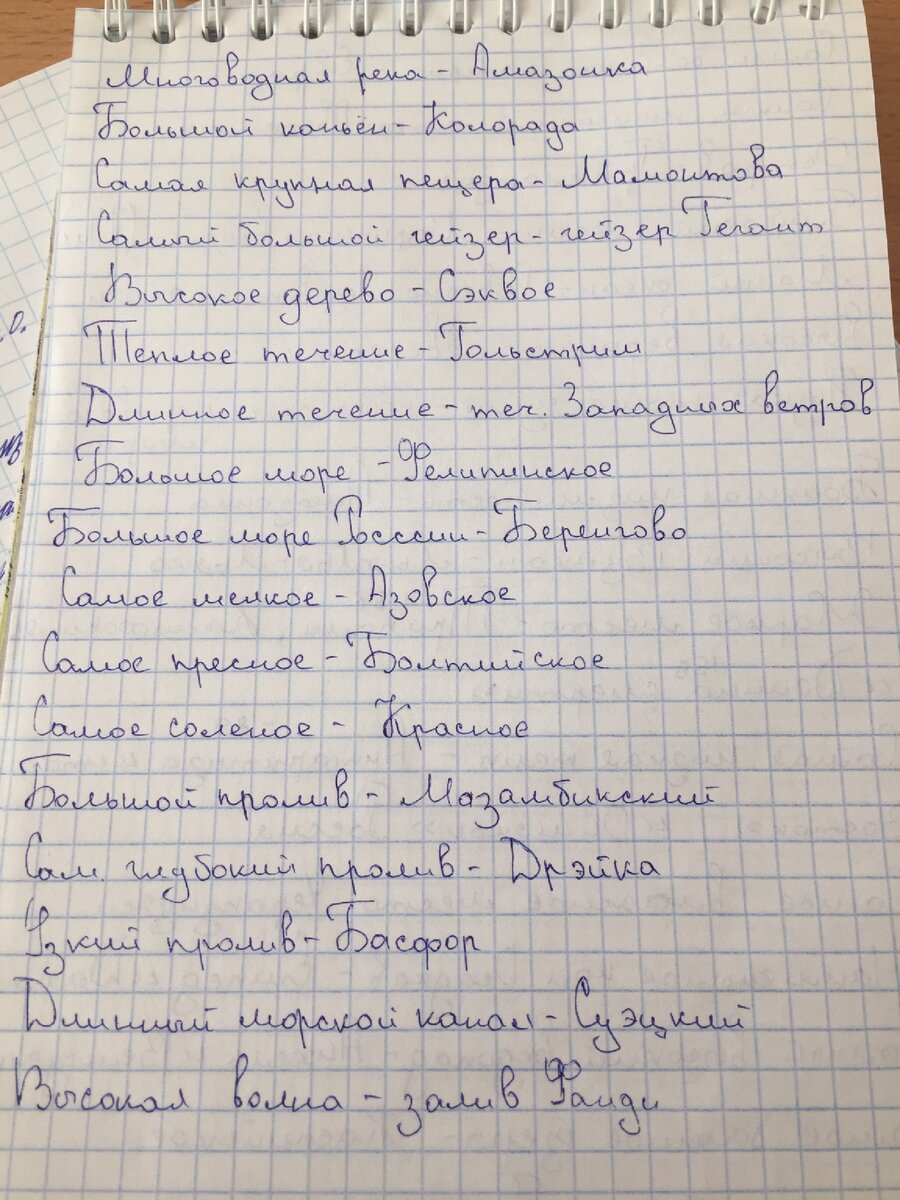 Многоводная река - Амазонка
Большой каньён - Колорада
Самая крупная пещера - Мамонтова
Самый большой гейзер - гейзер Гегант
Высокое дерево - Сэквое
Теплое течение - Гольстрим
Длинное течение - теч. Западных ветров
Большое море - Фелипинское
Большое море России - Беренгово
Самое мелкое - Азовское
Самое пресное - Болтийское
Самое соленое - Красное
Большой пролив - Мазамбикский
Сам. глубокий пролив - Дрэйка
Узкий пролив - Басфор
Длинный морской канал - Суэцкий
Высокая волна - залив Фанди